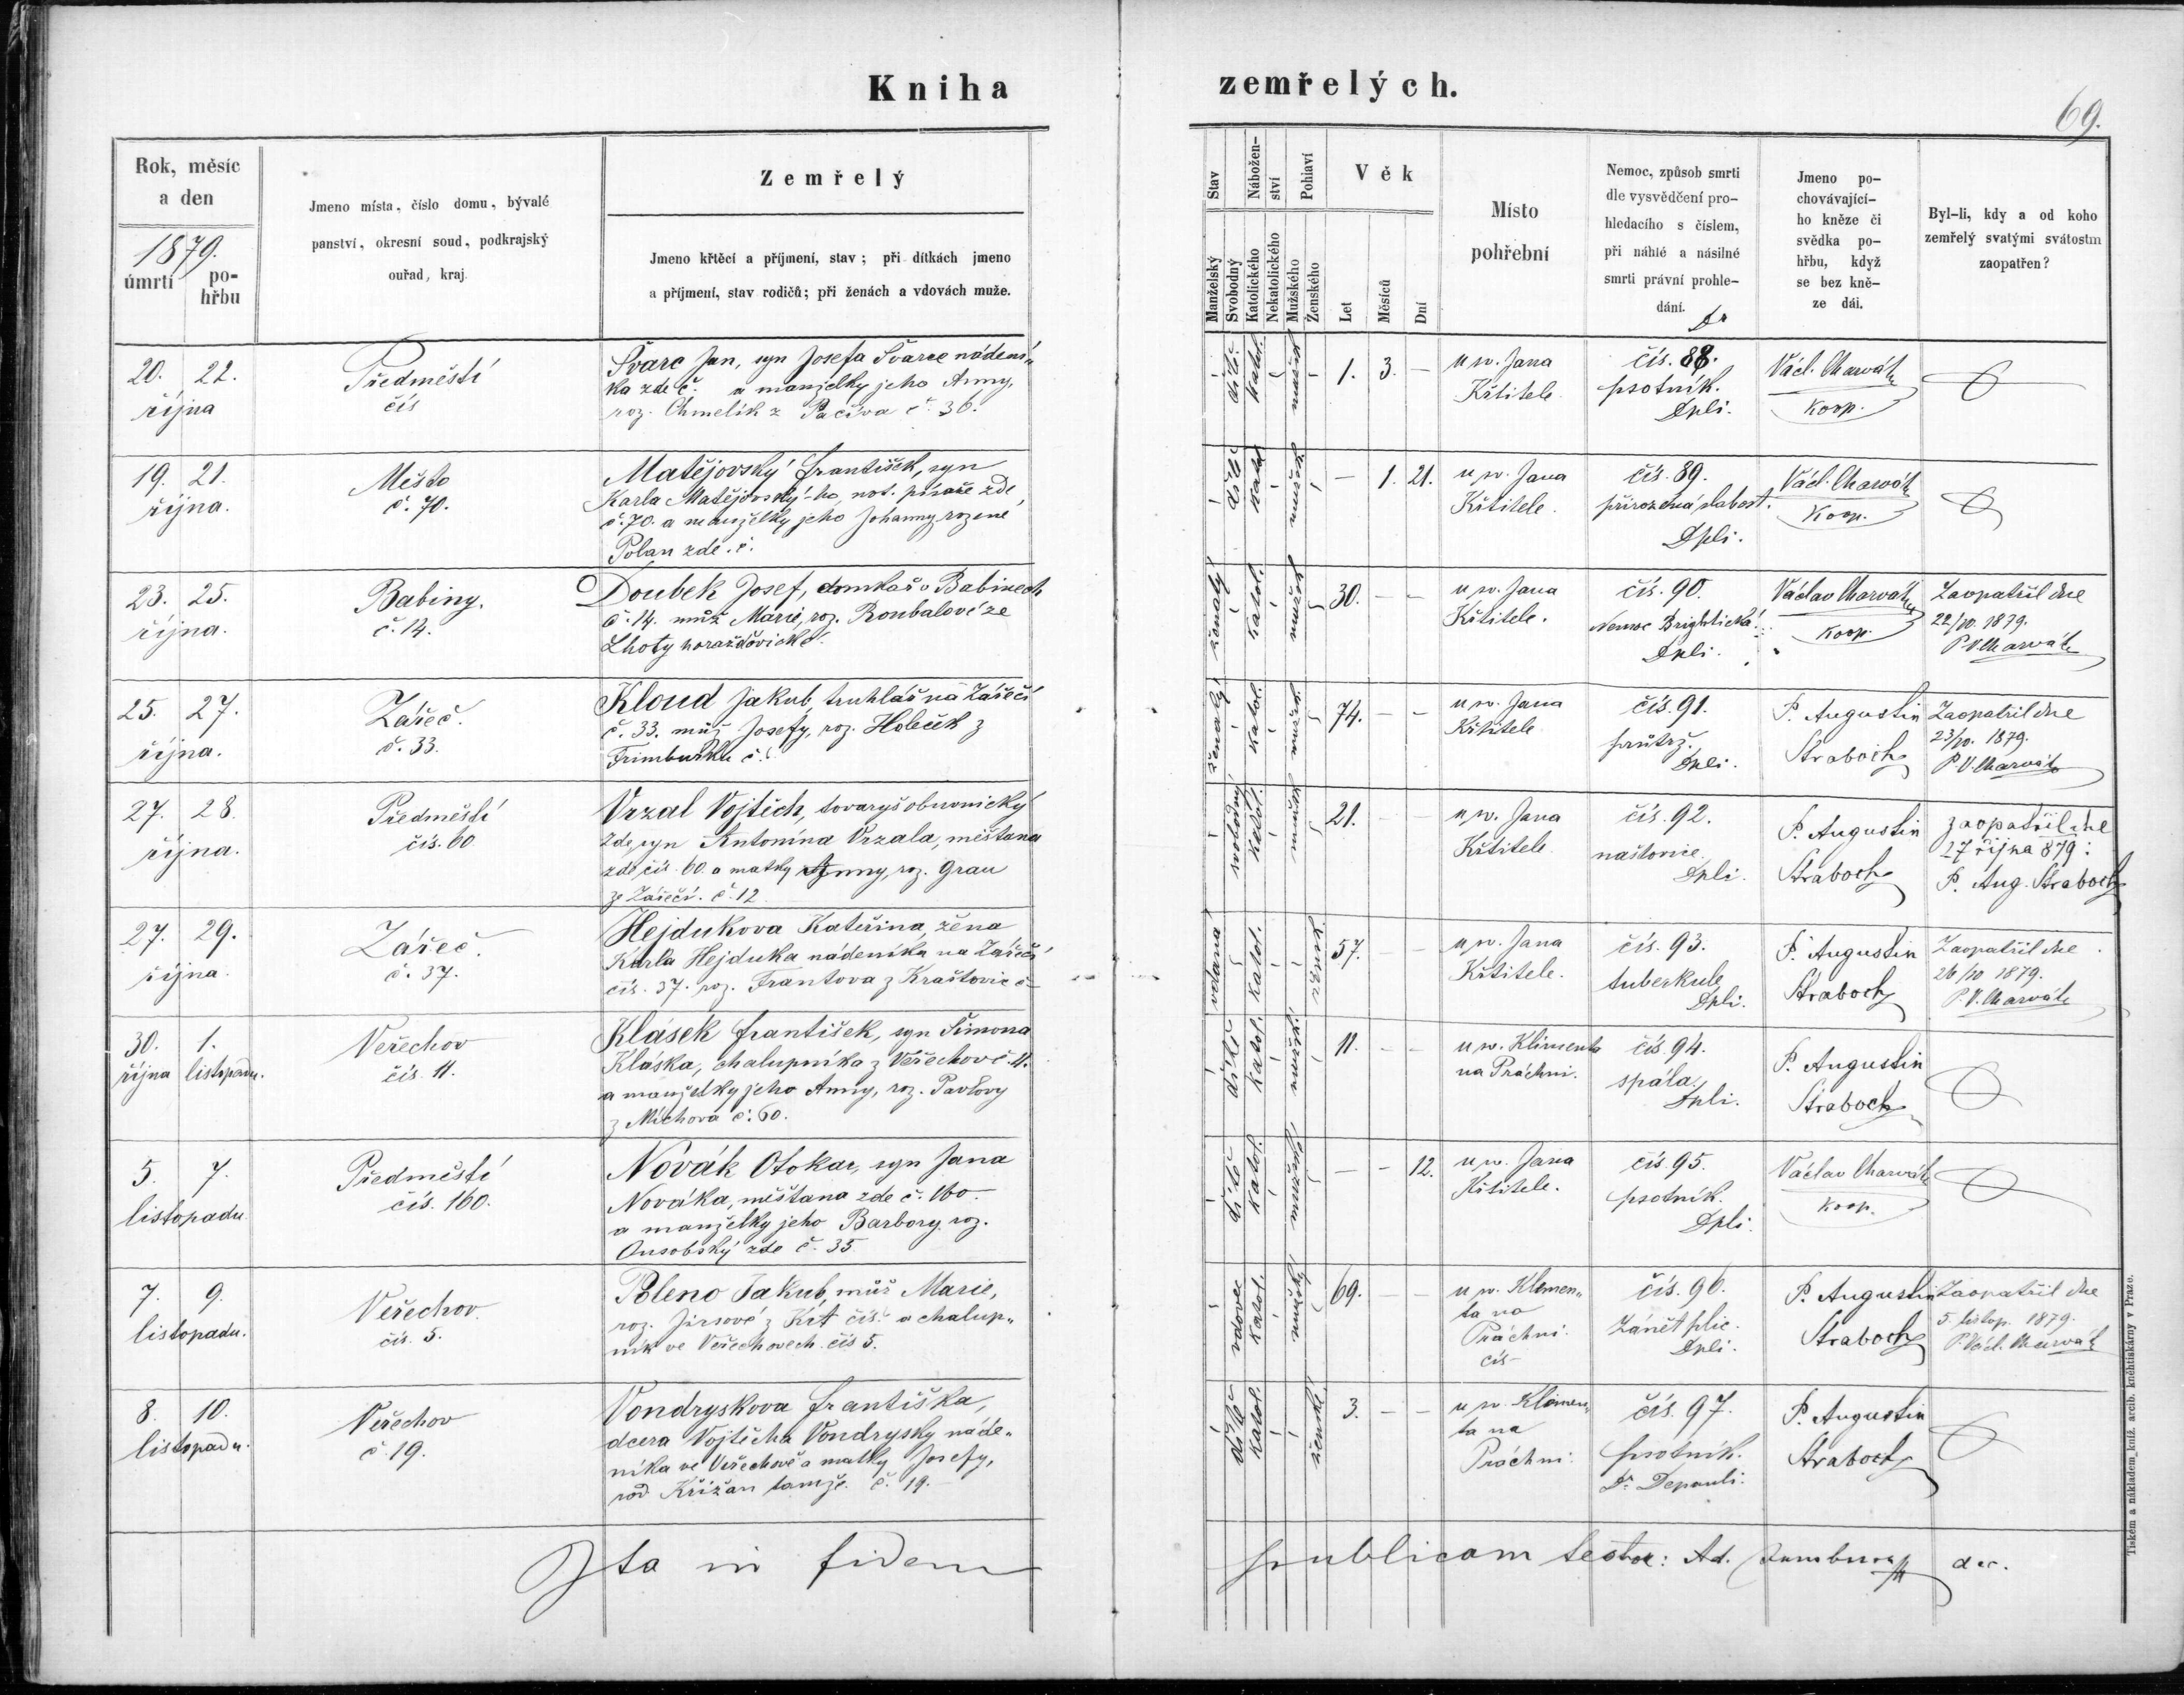 Kniha zemřelých.
69.
Rok, měsíc
a den
1879.
úmrtí
po-
hřbu
Jmeno místa, číslo domu, bývalé
panství, okresní soud, podkrajský
ouřad, kraj
Zemřelý
Jmeno křtěcí a příjmení, stav; při dítkách jmeno
a příjmení, stav rodičů; při ženách a vdovách muže.
Stav
Manželský
Svobodný
Nábožen-
ství
Katolického
Nekatolického
Pohlaví
Mužského
Ženského
Věk
Let
Měsíců
Dní
Místo
pohřební
Nemoc, způsob smrti
dle vysvědčení pro-
hledacího s číslem,
při náhlé a násilné
smrti právní prohle-
dání.
Jmeno po-
chovávající-
ho kněze či
svědka po-
hřbu, když
se bez kně-
ze dál.
Byl-li, kdy a od koho
zemřelý svatými svátostm
zaopatřen?
20. 22.
října
Předměstí
čís
Švarc Jan, syn Josefa Švarce nádení„
ka zde č. a manželky jeho Anny,
roz. Chmelík z Pačiva č. 36.
dítě
katol.
mužsk
1. 3. —
u sv. Jana
Křtitele
čís. 88.
psotník.
Dpli.
Václ. Charvát
Koop.
19. 21.
října.
Město
č. 70.
Matějovský František, syn
Karla Matějovský-ho, not. písaře zde,
č. 70. a manželky jeho Johanny rozené
Polan zde. č.
dítě
katol
mužsk
— 1. 21.
u sv. Jana
Křtitele.
čís. 89.
přirozená slabost.
Dpli.
Václ. Charvát
Koop.
23. 25.
října.
Babiny.
č. 14.
Doubek Josef, domkař v Babinech
č. 14. muž Marie, roz. Roubalové ze
Lhoty horažďovické.
ženatý
katol.
mužsk
30. — —
u sv. Jana
Křtitele.
čís. 90.
Nemoc Brightická.
Dpli.
Václav Charvát
Koop.
Zaopatřil dne
22/10. 1879.
P. V. Charvát
25. 27.
října.
Zářeč.
č. 33.
Kloud Jakub, truhlář na Zářečí
č. 33. muž Josefy, roz. Holeček z
Frimburku č.
ženatý
katol.
mužsk.
74. — —
u sv. Jana
Křtitele
čís. 91.
průtrž.
Dpli.
P. Augustin
Straboch
Zaopatřil dne
23/10. 1879.
P. V. Charvát
27. 28.
října.
Předměstí
čís. 60
Vrzal Vojtěch, tovaryš obuvnický
zde, syn Antonína Vrzala, měšťana
zde čís. 60. a matky Anny, roz. Grau
ze Zářečí. č. 12
svobodný
katol.
mužsk
21.
u sv. Jana
Křtitele
čís. 92.
naštovice.
Dpli.
P. Augustin
Straboch
zaopatřil dne
27 října 879:
P. Aug. Straboch
27. 29.
října.
Zářeč.
č. 37.
Hejdukova Kateřina, žena
Karla Hejduka nádeníka na Zářečí
čís. 37. roz. Frantova z Kraštovic č—
vdaná
katol.
žensk.
57. —
u sv. Jana
Křtitele.
čís. 93.
tuberkule
Dpli.
P. Augustin
Straboch
Zaopatřil dne
26/10 1879.
P. V. Charvát
30. 1.
října listopadu.
Veřechov
čís. 11.
Klásek František, syn Šimona
Kláska, chalupníka z Veřechov č. 11.
a manželky jeho Anny, roz. Pavlovy
z Míchova č. 60.
dítě
katol.
mužsk.
11. — —
u sv. Klimenta
na Práchni.
čís. 94.
spála.
Dpli.
P. Augustin
Straboch
5. 7.
listopadu
Předměstí
čís. 160.
Novák Otokar, syn Jana
Nováka, měšťana zde č. 160.
a manželky jeho Barbory roz.
Ousobský zde č. 35
dítě
katol.
mužského
— — 12.
u sv. Jana
Křtitele.
čís. 95.
psotník.
Dpli.
Václav Charvát
koop.
7. 9.
listopadu.
Veřechov.
čís. 5.
Poleno Jakub, muž Marie,
roz. Jirsové z Kít čís. a chalup„
ník ve Veřechovech. čís 5.
vdovec
katol.
mužský
69. — —
u sv. Klemen„
ta na
Práchni
čís—
čís. 96.
Zánět plic.
Dpli.
P. Augustin
Straboch
Zaopatřil dne
5. listop. 1879.
P. Václ. Charvát
8. 10.
listopadu.
Veřechov
č. 19.
Vondryskova Františka,
dcera Vojtěcha Vondrysky náde„
níka ve Veřechově a matky Josefy,
rod. Křižan tamže. č. 19.
dítě
katol.
ženské
3. — —
u sv. Klimen„
ta na
Práchni
čís. 97.
psotník.
Dr. Depauli.
P. Augustin
Straboch
Ita in fidem publicam testor: Ad. dec.
Tiskem a nákladem kníž. arcib. knihtiskárny v Praze.